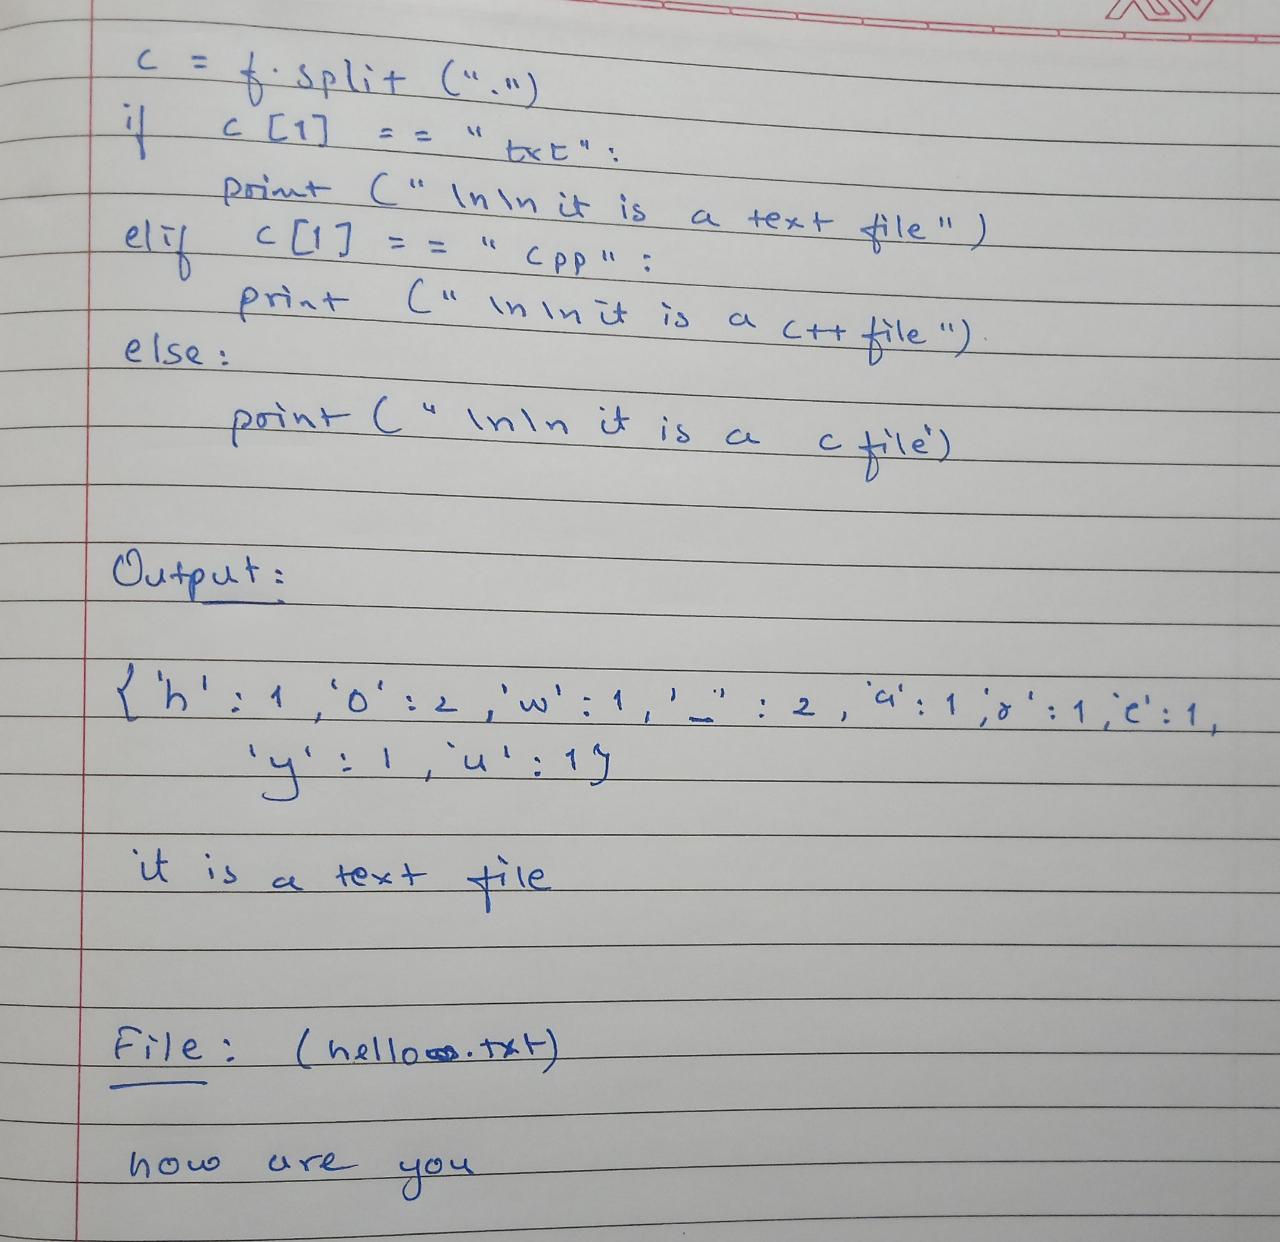 c = f.split (".")
if c [1] == "txt":
print ("\n\n it is a text file")
elif c[1] == "cpp":
print ("\n\n it is a c++ file").
else:
print ("\n\n it is a c file')
Output:
{'h': 1, 'o': 2, 'w': 1, '_': 2, 'a': 1, 'r': 1, 'e': 1,
'y': 1, 'u': 1}
it is a text file
File: (hello.txt)
how are you